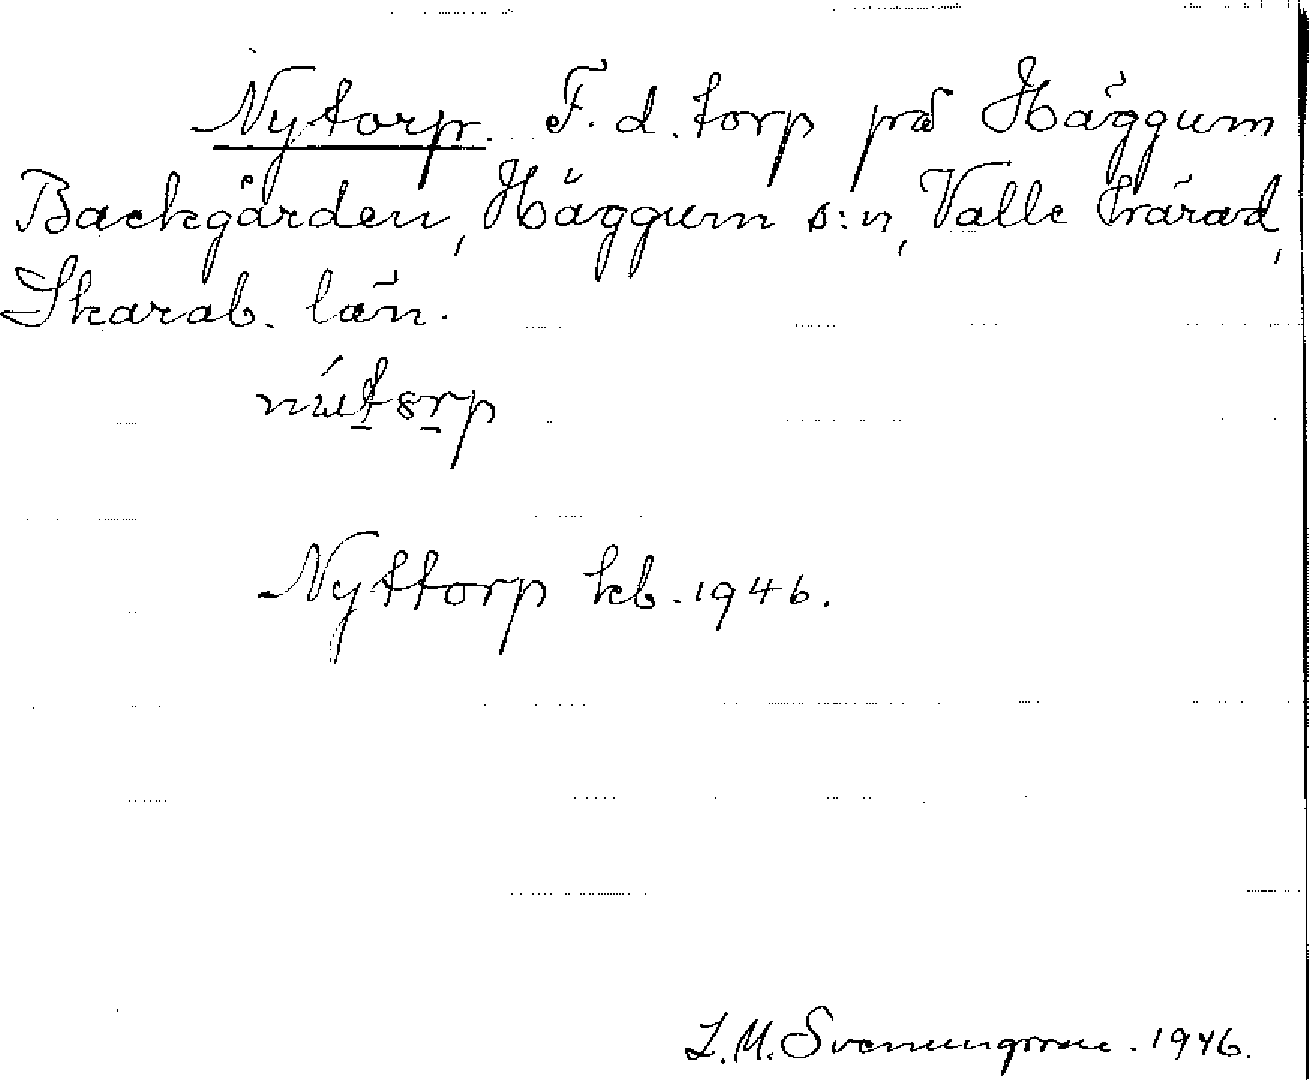 Nytorp. F. d. torp på Häggum
Backgården, Häggum s:n, Valle härad,
Skarab. län.
nút8rp
Nyttorp kb. 1946.
L. M. Svenungsson. 1946.